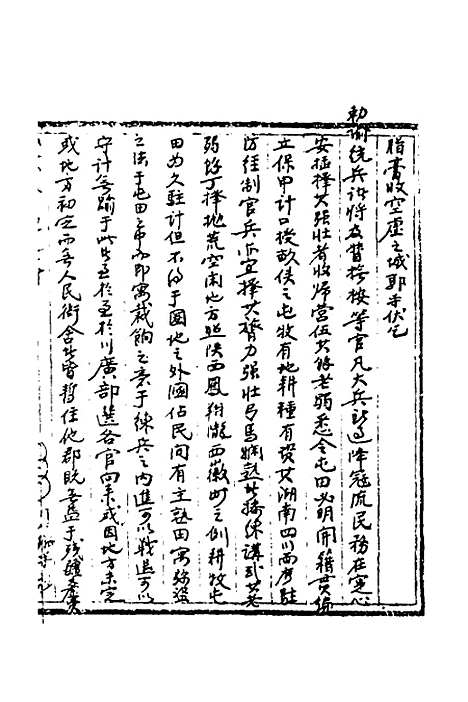 脂膏收空虛之城郭等伏乞
勅御統兵諸將及督撫按等官凡大兵所過降寇流民務在定心
安插擇其強壯者收歸營伍其餘老弱悉令屯田必明開籍貫編
立保甲計口授畝俟之屯牧有地耕種有資其湖南四川西房駐
防經制官兵亦宜擇其膂力強壯弓馬嫻熟者操練講武其老
弱餘丁擇拋荒空閑地方照陝西鳳翔漢西徽州之例耕牧屯
田为久駐計但不得于圈地之外圈佔民間有主熟田寓弥盜
之法于屯田之中亦即寓裁餉之意于練兵之內進可以戰退可以
守計無踰于此者至於至於川廣部選各官向来或因地方未定
或地方初定而無人民衙舍者皆暫住他郡既無益于殘疆